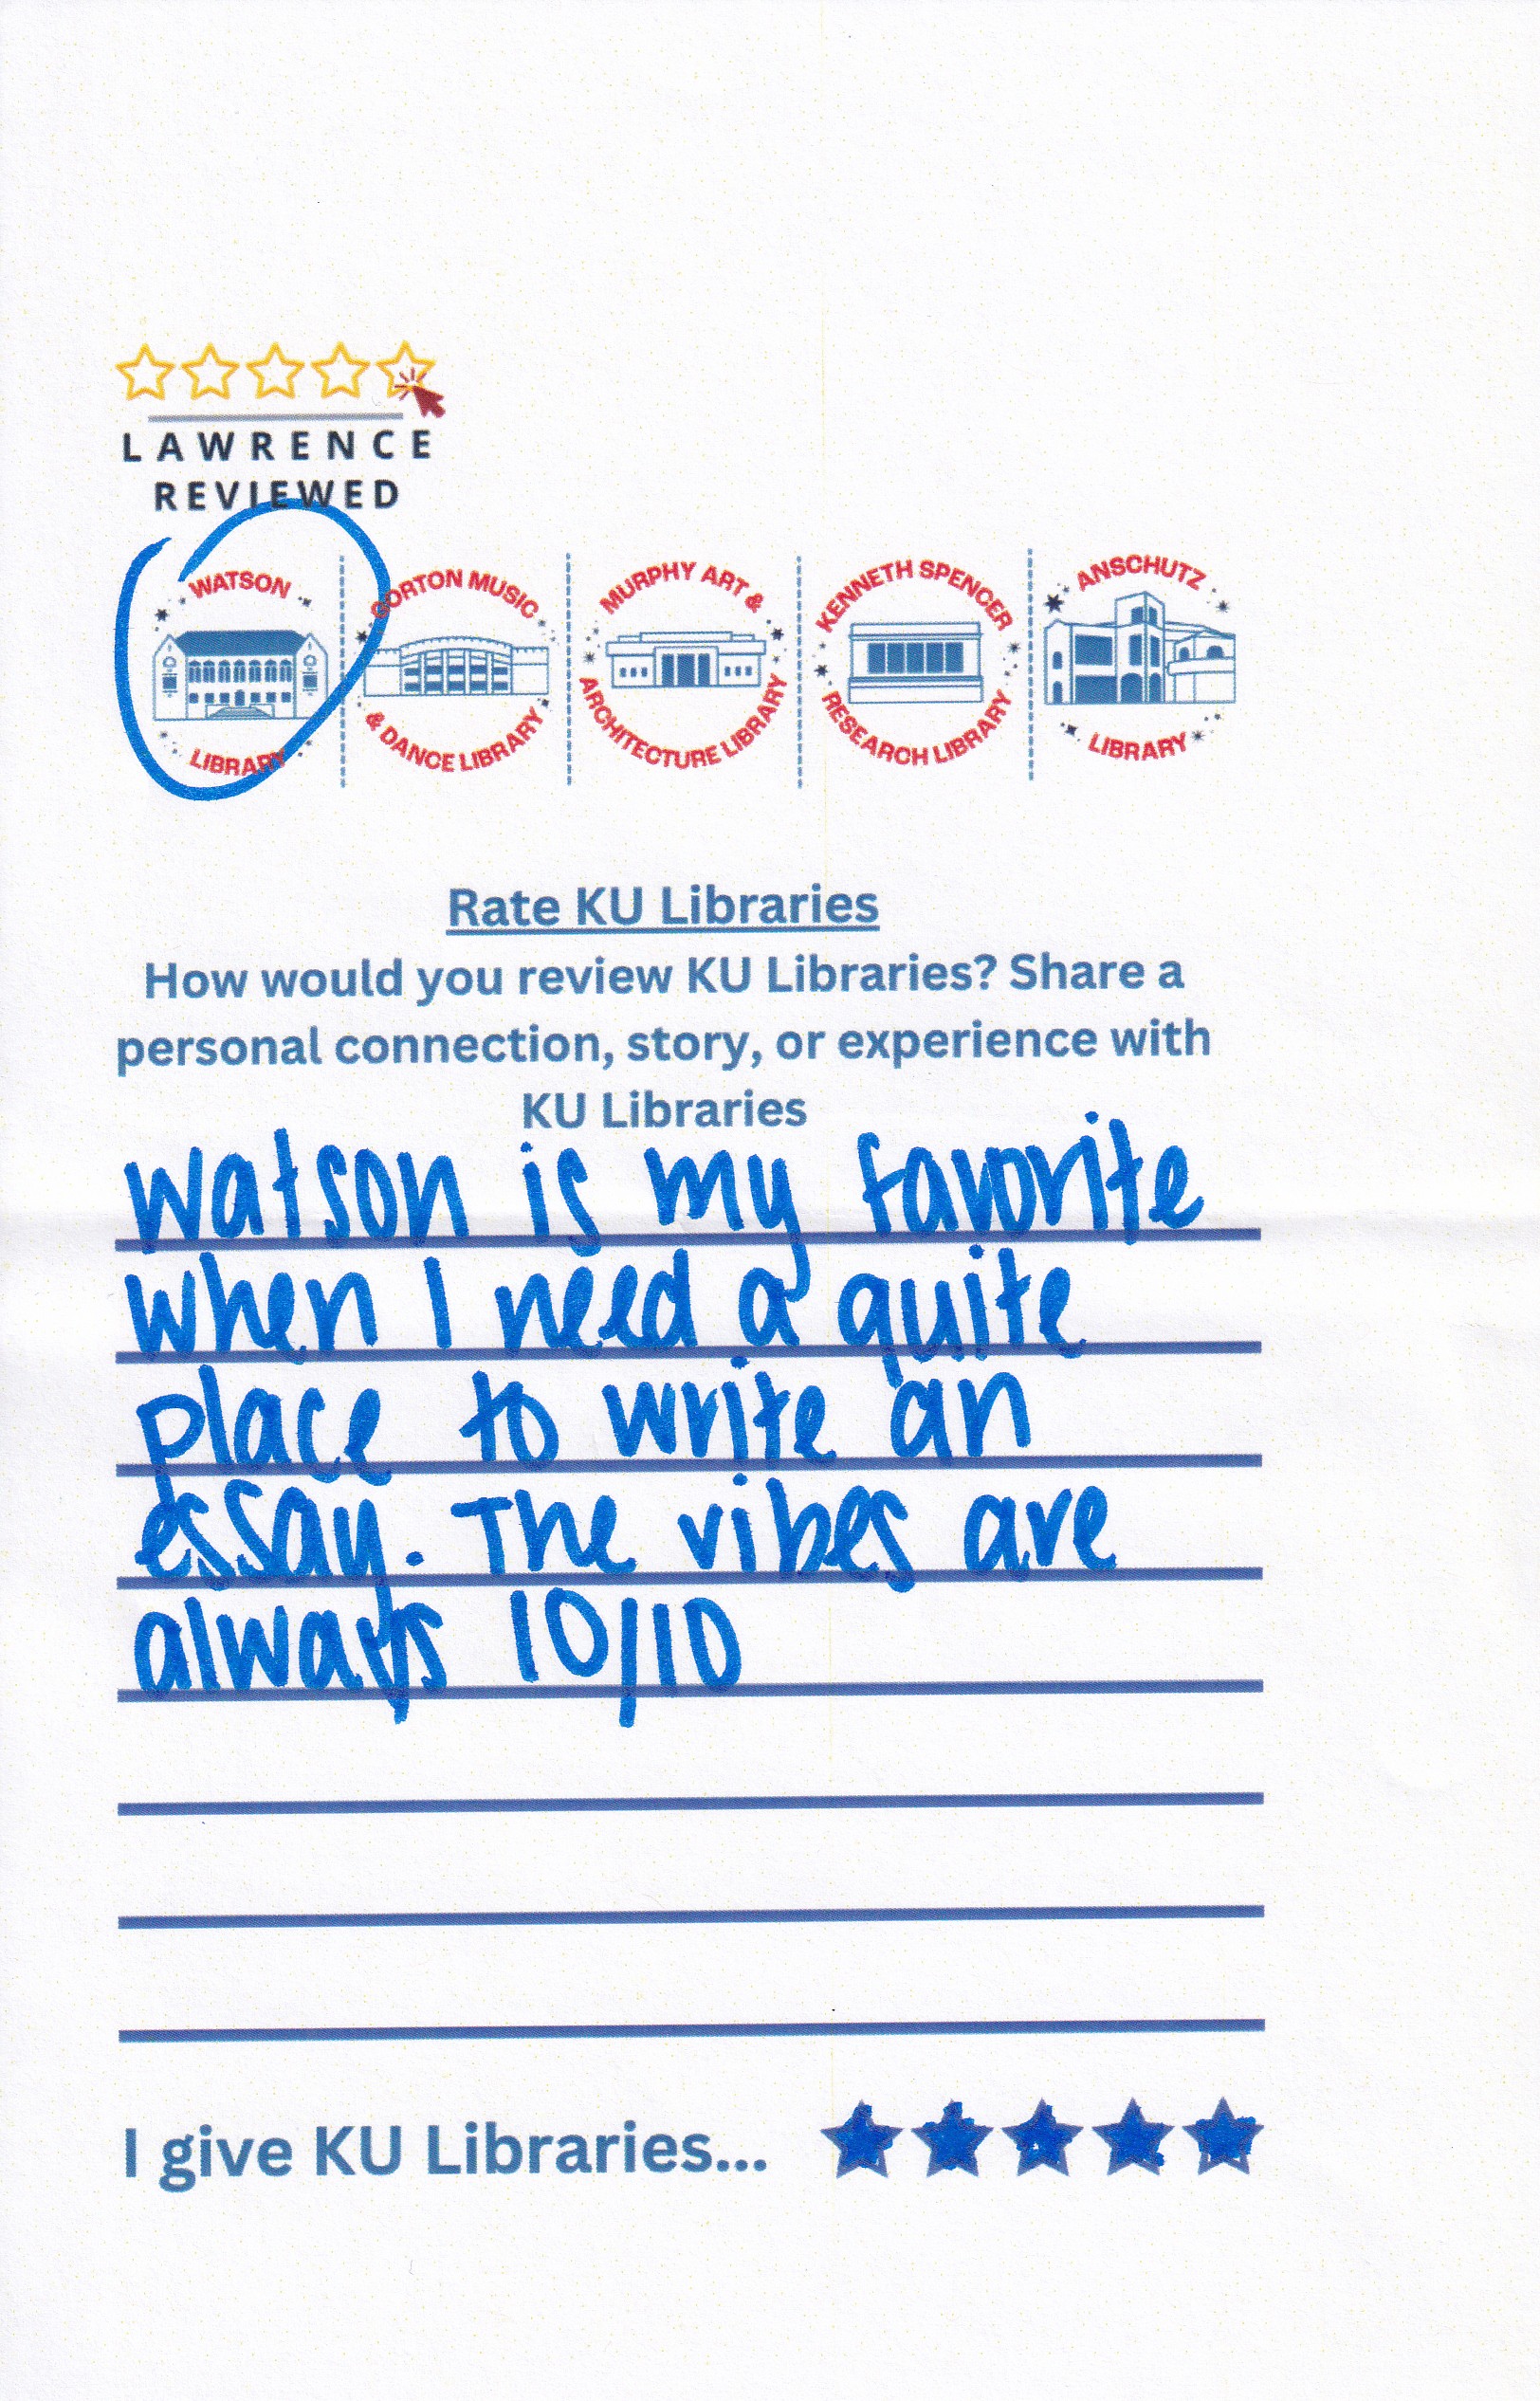 LAWRENCE
REVIEWED
WATSON
LIBRARY
GORTON MUSIC
& DANCE LIBRARY
MURPHY ART &
ARCHITECTURE LIBRARY
KENNETH SPENCER
RESEARCH LIBRARY
ANSCHUTZ
LIBRARY
Rate KU Libraries
How would you review KU Libraries? Share a
personal connection, story, or experience with
KU Libraries
Watson is my favorite
when I need a quite
place to write an
essay. The vibes are
always 10/10
I give KU Libraries...